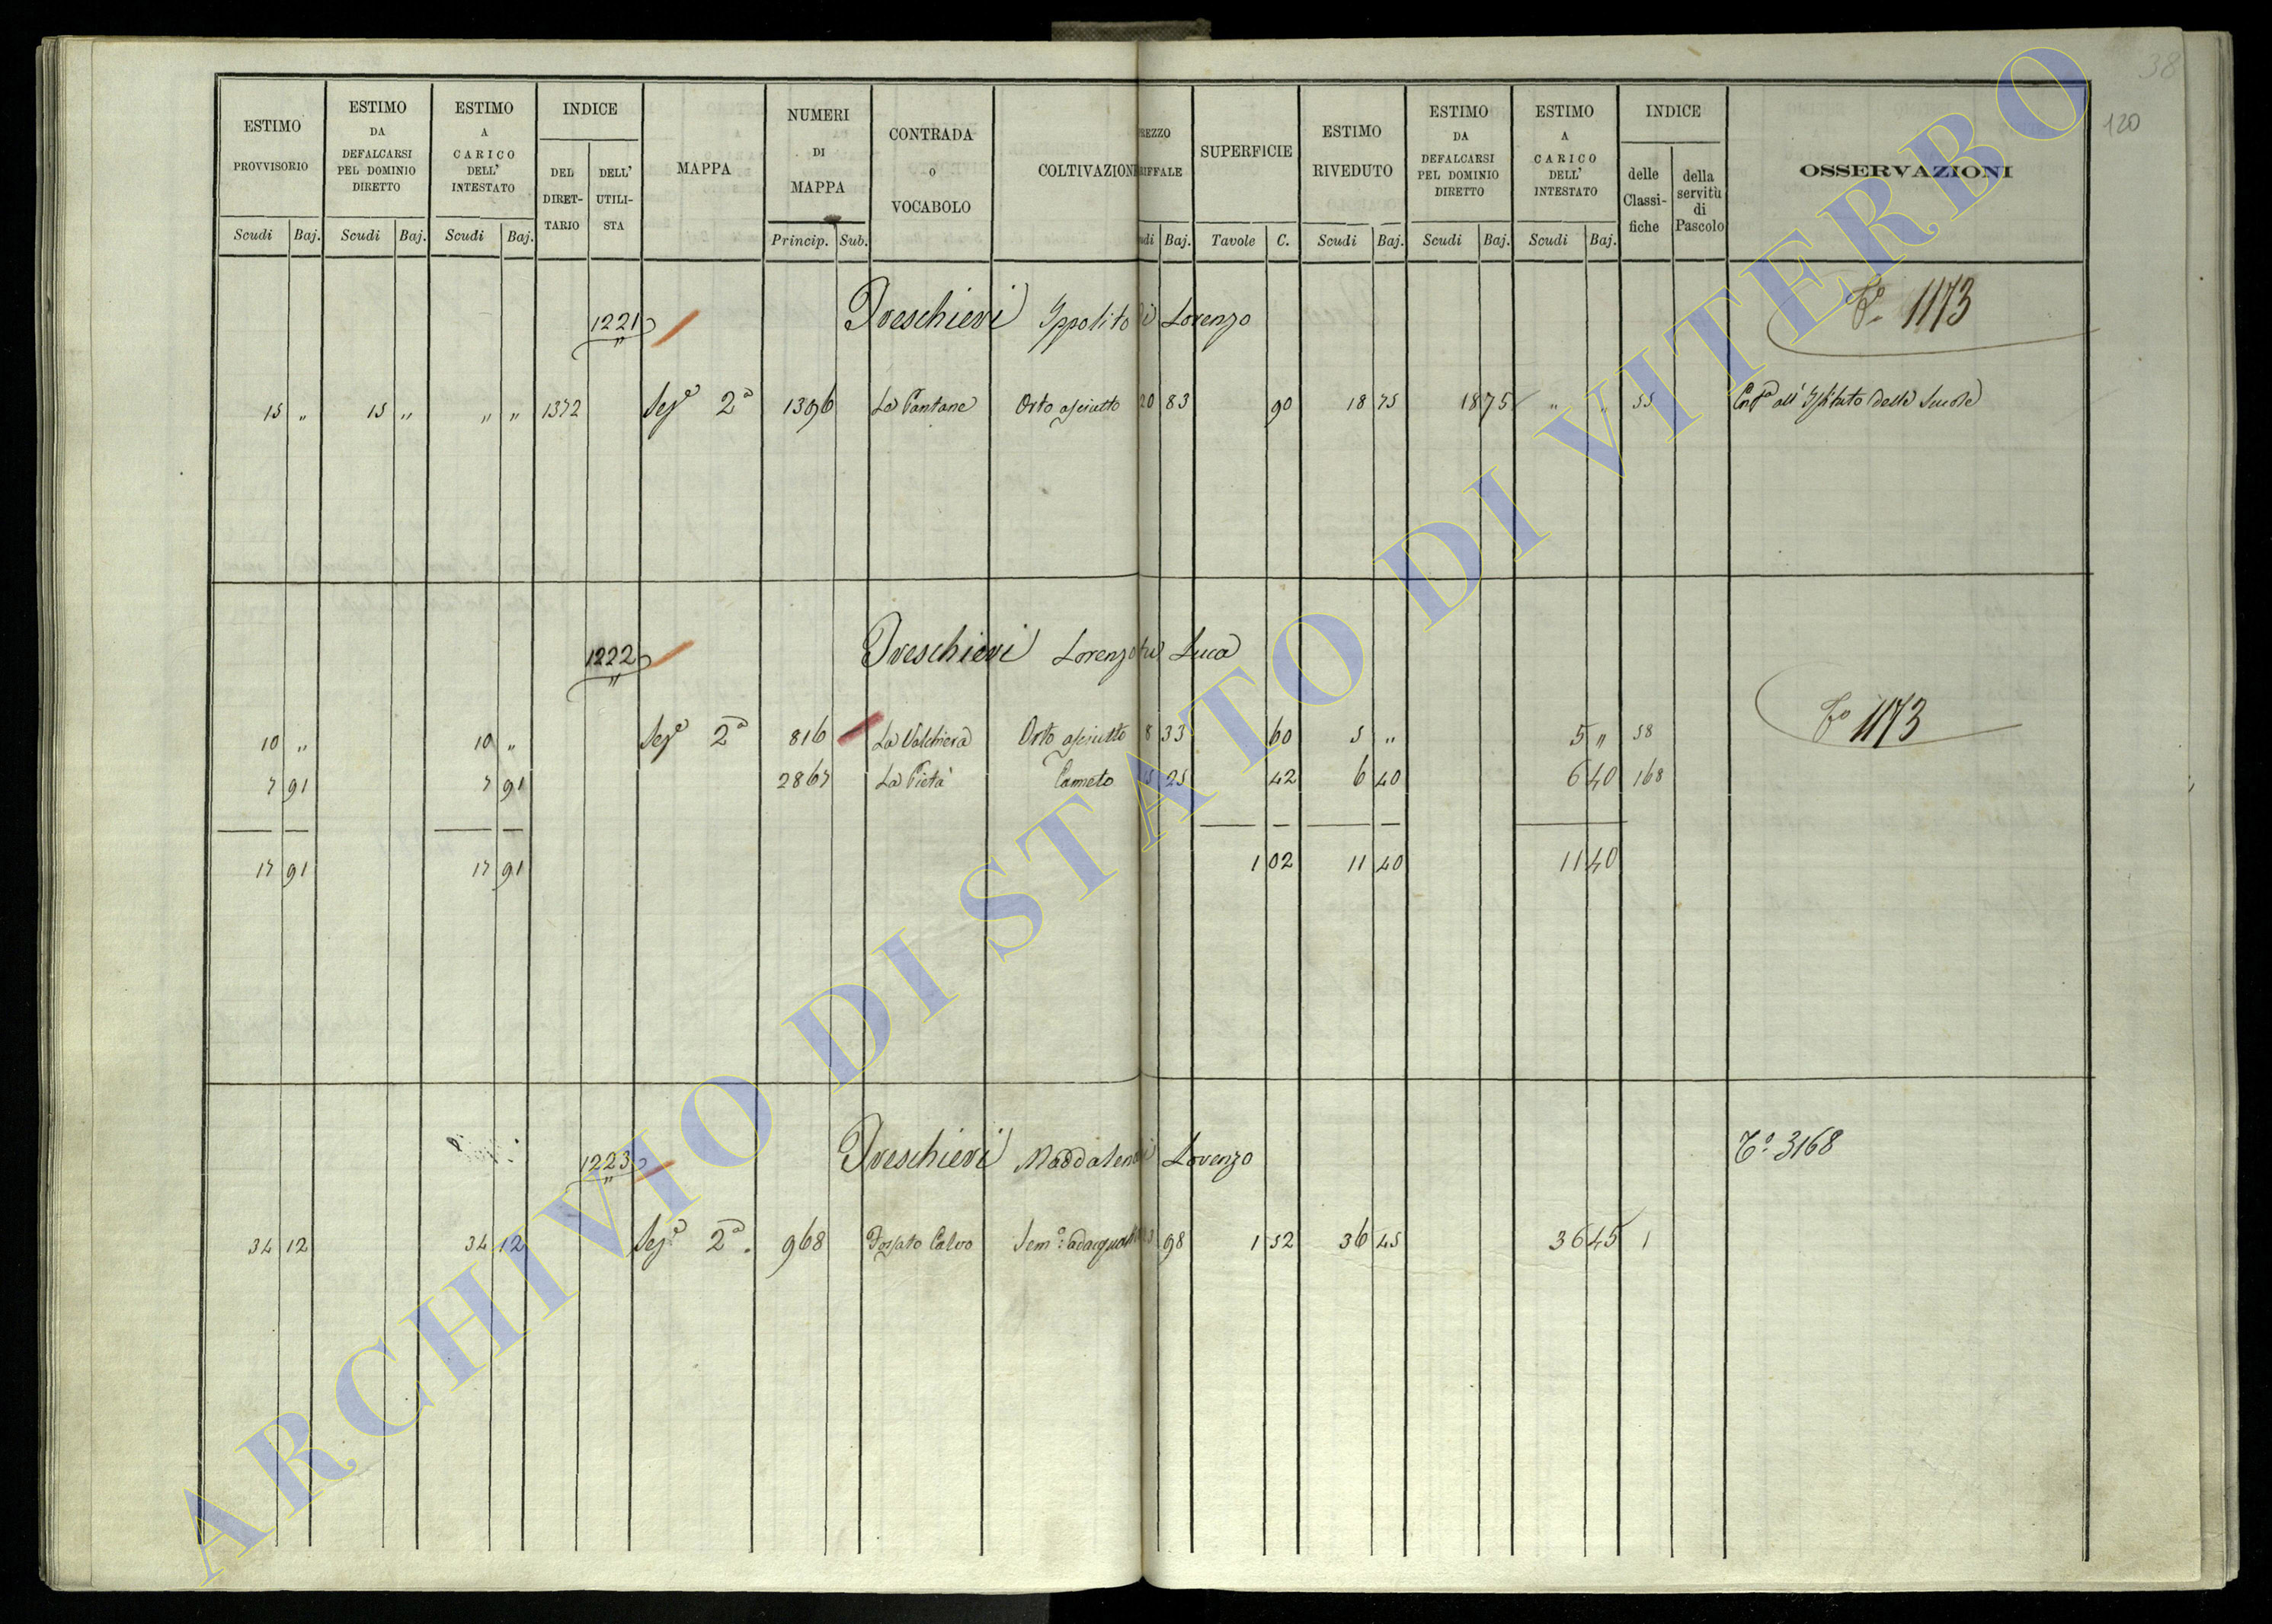 38
120
ESTIMO PROVVISORIO
ESTIMO DA DEFALCARSI PEL DOMINIO DIRETTO
ESTIMO A CARICO DELL' INTESTATO
INDICE
DEL DIRETTARIO
DELL' UTILISTA
MAPPA
NUMERI DI MAPPA
CONTRADA O VOCABOLO
COLTIVAZIONE
REZZO RIFFALE
SUPERFICIE
ESTIMO RIVEDUTO
ESTIMO DA DEFALCARSI PEL DOMINIO DIRETTO
ESTIMO A CARICO DELL' INTESTATO
INDICE
delle Classifiche
della servitù di Pascolo
OSSERVAZIONI
Scudi Baj. Scudi Baj. Scudi Baj. Princip. Sub. udi Baj. Tavole C. Scudi Baj. Scudi Baj. Scudi Baj.
1221 Ippolito di Lorenzo T.o 1173
15 " 15 " " " 1372 Sez.e 2a 1396 Le Pantane Orto asciutto 20 83 90 18 75 18 75 " " 55 all' Istituto delle Scuole
1222 Lorenzo fu Luca
T.o 1173
10 " 10 " Sez.e 2a 816 La Valchiera Orto asciutto 8 33 60 5 " 5 " 58
7 91 7 91 2867 La Pietà Canneto 15 25 42 6 40 6 40 168
17 91 17 91 1 02 11 40 11 40
1223 Maddalena di Lorenzo T.o 3168
34 12 34 12 Sez.e 2a 968 Fossato Calvo Sem.o adacquat 98 1 52 36 45 36 45 1
ARCHIVIO DI STATO DI VITERBO